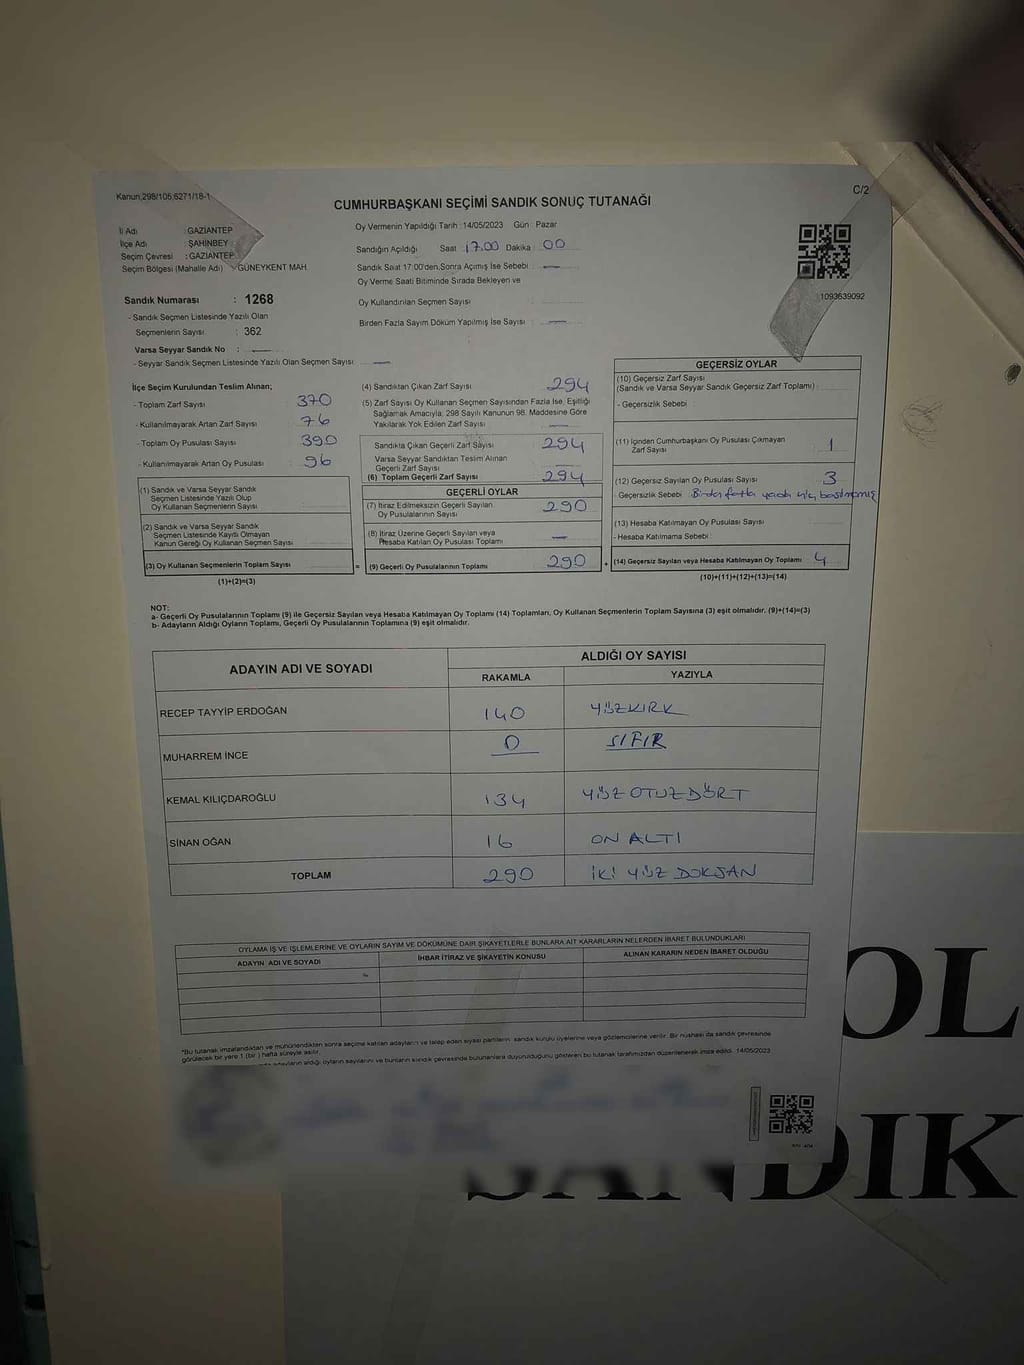 Kanun:298/105;6271/18-1
C/2
CUMHURBAŞKANI SEÇİMİ SANDIK SONUÇ TUTANAĞI
İl Adı : GAZİANTEP
İlçe Adı : ŞAHİNBEY
Seçim Çevresi : GAZİANTEP
Seçim Bölgesi (Mahalle Adı) : GÜNEYKENT MAH.
Oy Vermenin Yapıldığı Tarih :14/05/2023 Gün : Pazar
Sandığın Açıldığı Saat 17.00 Dakika 00
Sandık Saat 17:00'den Sonra Açılmış İse Sebebi —
Oy Verme Saati Bitiminde Sırada Bekleyen ve
Oy Kullandırılan Seçmen Sayısı
Birden Fazla Sayım Döküm Yapılmış İse Sayısı —
1093639092
Sandık Numarası : 1268
- Sandık Seçmen Listesinde Yazılı Olan
Seçmenlerin Sayısı : 362
Varsa Seyyar Sandık No : —
- Seyyar Sandık Seçmen Listesinde Yazılı Olan Seçmen Sayısı : —
İlçe Seçim Kurulundan Teslim Alınan;
- Toplam Zarf Sayısı 370
- Kullanılmayarak Artan Zarf Sayısı 76
- Toplam Oy Pusulası Sayısı 390
- Kullanılmayarak Artan Oy Pusulası 96
(1) Sandık ve Varsa Seyyar Sandık
Seçmen Listesinde Yazılı Olup
Oy Kullanan Seçmenlerin Sayısı
(2) Sandık ve Varsa Seyyar Sandık
Seçmen Listesinde Kaydı Olmayan
Kanun Gereği Oy Kullanan Seçmen Sayısı
(3) Oy Kullanan Seçmenlerin Toplam Sayısı
(1)+(2)=(3)
=
(4) Sandıktan Çıkan Zarf Sayısı 294
(5) Zarf Sayısı Oy Kullanan Seçmen Sayısından Fazla İse, Eşitliği
Sağlamak Amacıyla, 298 Sayılı Kanunun 98. Maddesine Göre
Yakılarak Yok Edilen Zarf Sayısı —
Sandıkta Çıkan Geçerli Zarf Sayısı 294
Varsa Seyyar Sandıktan Teslim Alınan
Geçerli Zarf Sayısı —
(6) Toplam Geçerli Zarf Sayısı 294
GEÇERLİ OYLAR
(7) İtiraz Edilmeksizin Geçerli Sayılan
Oy Pusulalarının Sayısı 290
(8) İtiraz Üzerine Geçerli Sayılan veya
Hesaba Katılan Oy Pusulası Toplamı —
(9) Geçerli Oy Pusulalarının Toplamı 290
+
GEÇERSİZ OYLAR
(10) Geçersiz Zarf Sayısı
(Sandık ve Varsa Seyyar Sandık Geçersiz Zarf Toplamı) :
- Geçersizlik Sebebi :
(11) İçinden Cumhurbaşkanı Oy Pusulası Çıkmayan
Zarf Sayısı 1
(12) Geçersiz Sayılan Oy Pusulası Sayısı 3
- Geçersizlik Sebebi Birden fazla yada hiç basılmamış
(13) Hesaba Katılmayan Oy Pusulası Sayısı
- Hesaba Katılmama Sebebi :
(14) Geçersiz Sayılan veya Hesaba Katılmayan Oy Toplamı 4
(10)+(11)+(12)+(13)=(14)
NOT:
a- Geçerli Oy Pusulalarının Toplamı (9) ile Geçersiz Sayılan veya Hesaba Katılmayan Oy Toplamı (14) Toplamları, Oy Kullanan Seçmenlerin Toplam Sayısına (3) eşit olmalıdır. (9)+(14)=(3)
b- Adayların Aldığı Oyların Toplamı, Geçerli Oy Pusulalarının Toplamına (9) eşit olmalıdır.
ADAYIN ADI VE SOYADI
ALDIĞI OY SAYISI
RAKAMLA YAZIYLA
RECEP TAYYİP ERDOĞAN 140 YÜZKIRK
MUHARREM İNCE 0 SIFIR
KEMAL KILIÇDAROĞLU 134 YÜZ OTUZDÖRT
SİNAN OĞAN 16 ON ALTI
TOPLAM 290 İKİ YÜZ DOKSAN
OYLAMA İŞ VE İŞLEMLERİNE VE OYLARIN SAYIM VE DÖKÜMÜNE DAİR ŞİKAYETLERLE BUNLARA AİT KARARLARIN NELERDEN İBARET BULUNDUKLARI
ADAYIN ADI VE SOYADI İHBAR İTİRAZ VE ŞİKAYETİN KONUSU ALINAN KARARIN NEDEN İBARET OLDUĞU
*Bu tutanak imzalandıktan ve mühürlendikten sonra seçime katılan adayların ve talep eden siyasi partilerin sandık kurulu üyelerine veya gözlemcilerine verilir. Bir nüshası da sandık çevresinde
görülecek bir yere 1 (bir ) hafta süreyle asılır.
adayların aldığı oyların sayılarını ve bunların sandık çevresinde bulunanlara duyurulduğunu gösteren bu tutanak tarafımızdan düzenlenerek imza edildi. 14/05/2023
OL
SANDIK